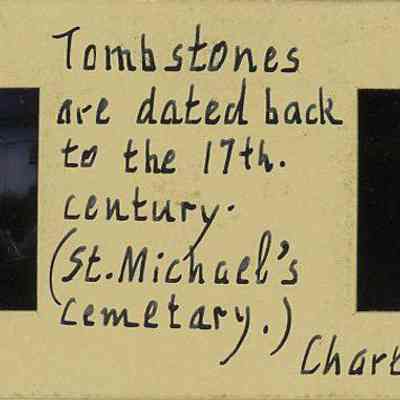 Tombstones
are dated back
to the 17th.
century.
(St. Michael's
cemetary.)